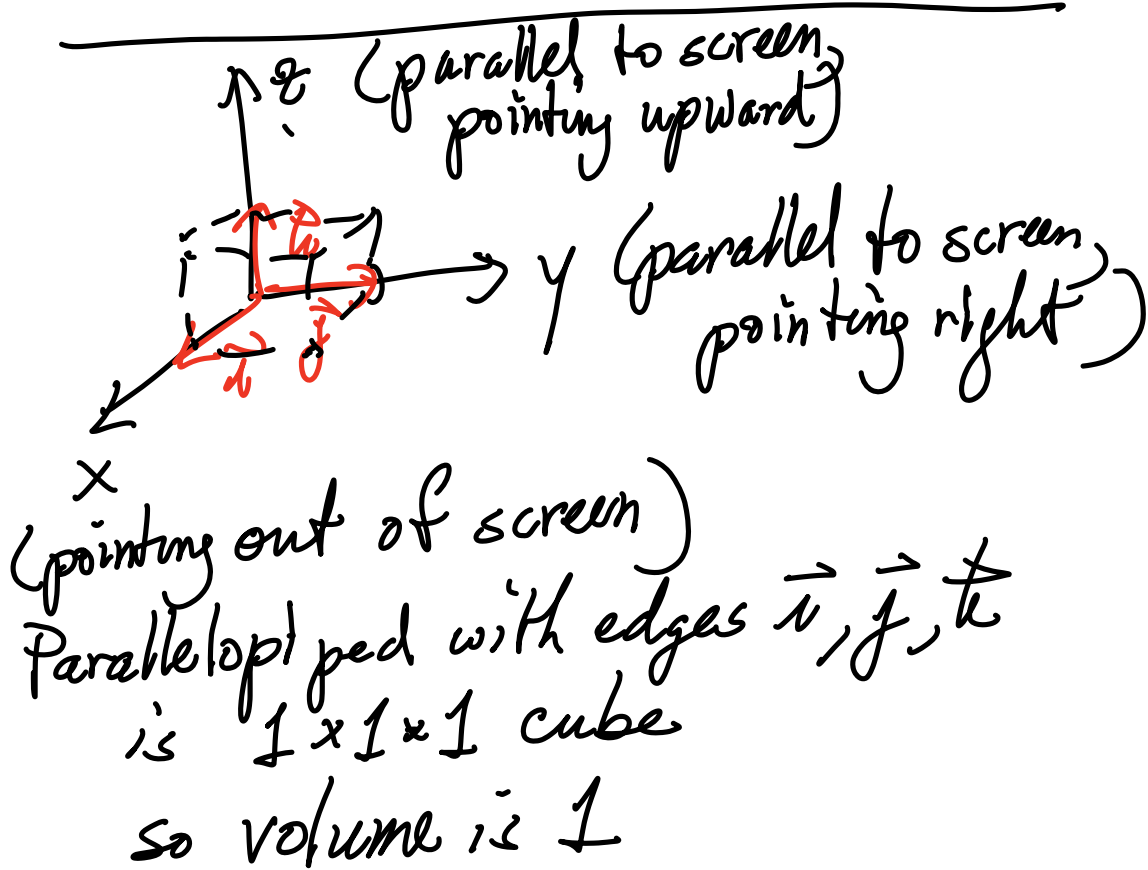 z (parallel to screen,
pointing upward)
k⃗
y (parallel to screen,
pointing right)
j⃗
i⃗
x
(pointing out of screen)
Parallelopiped with edges i⃗, j⃗, k⃗
is 1×1×1 cube
so volume is 1